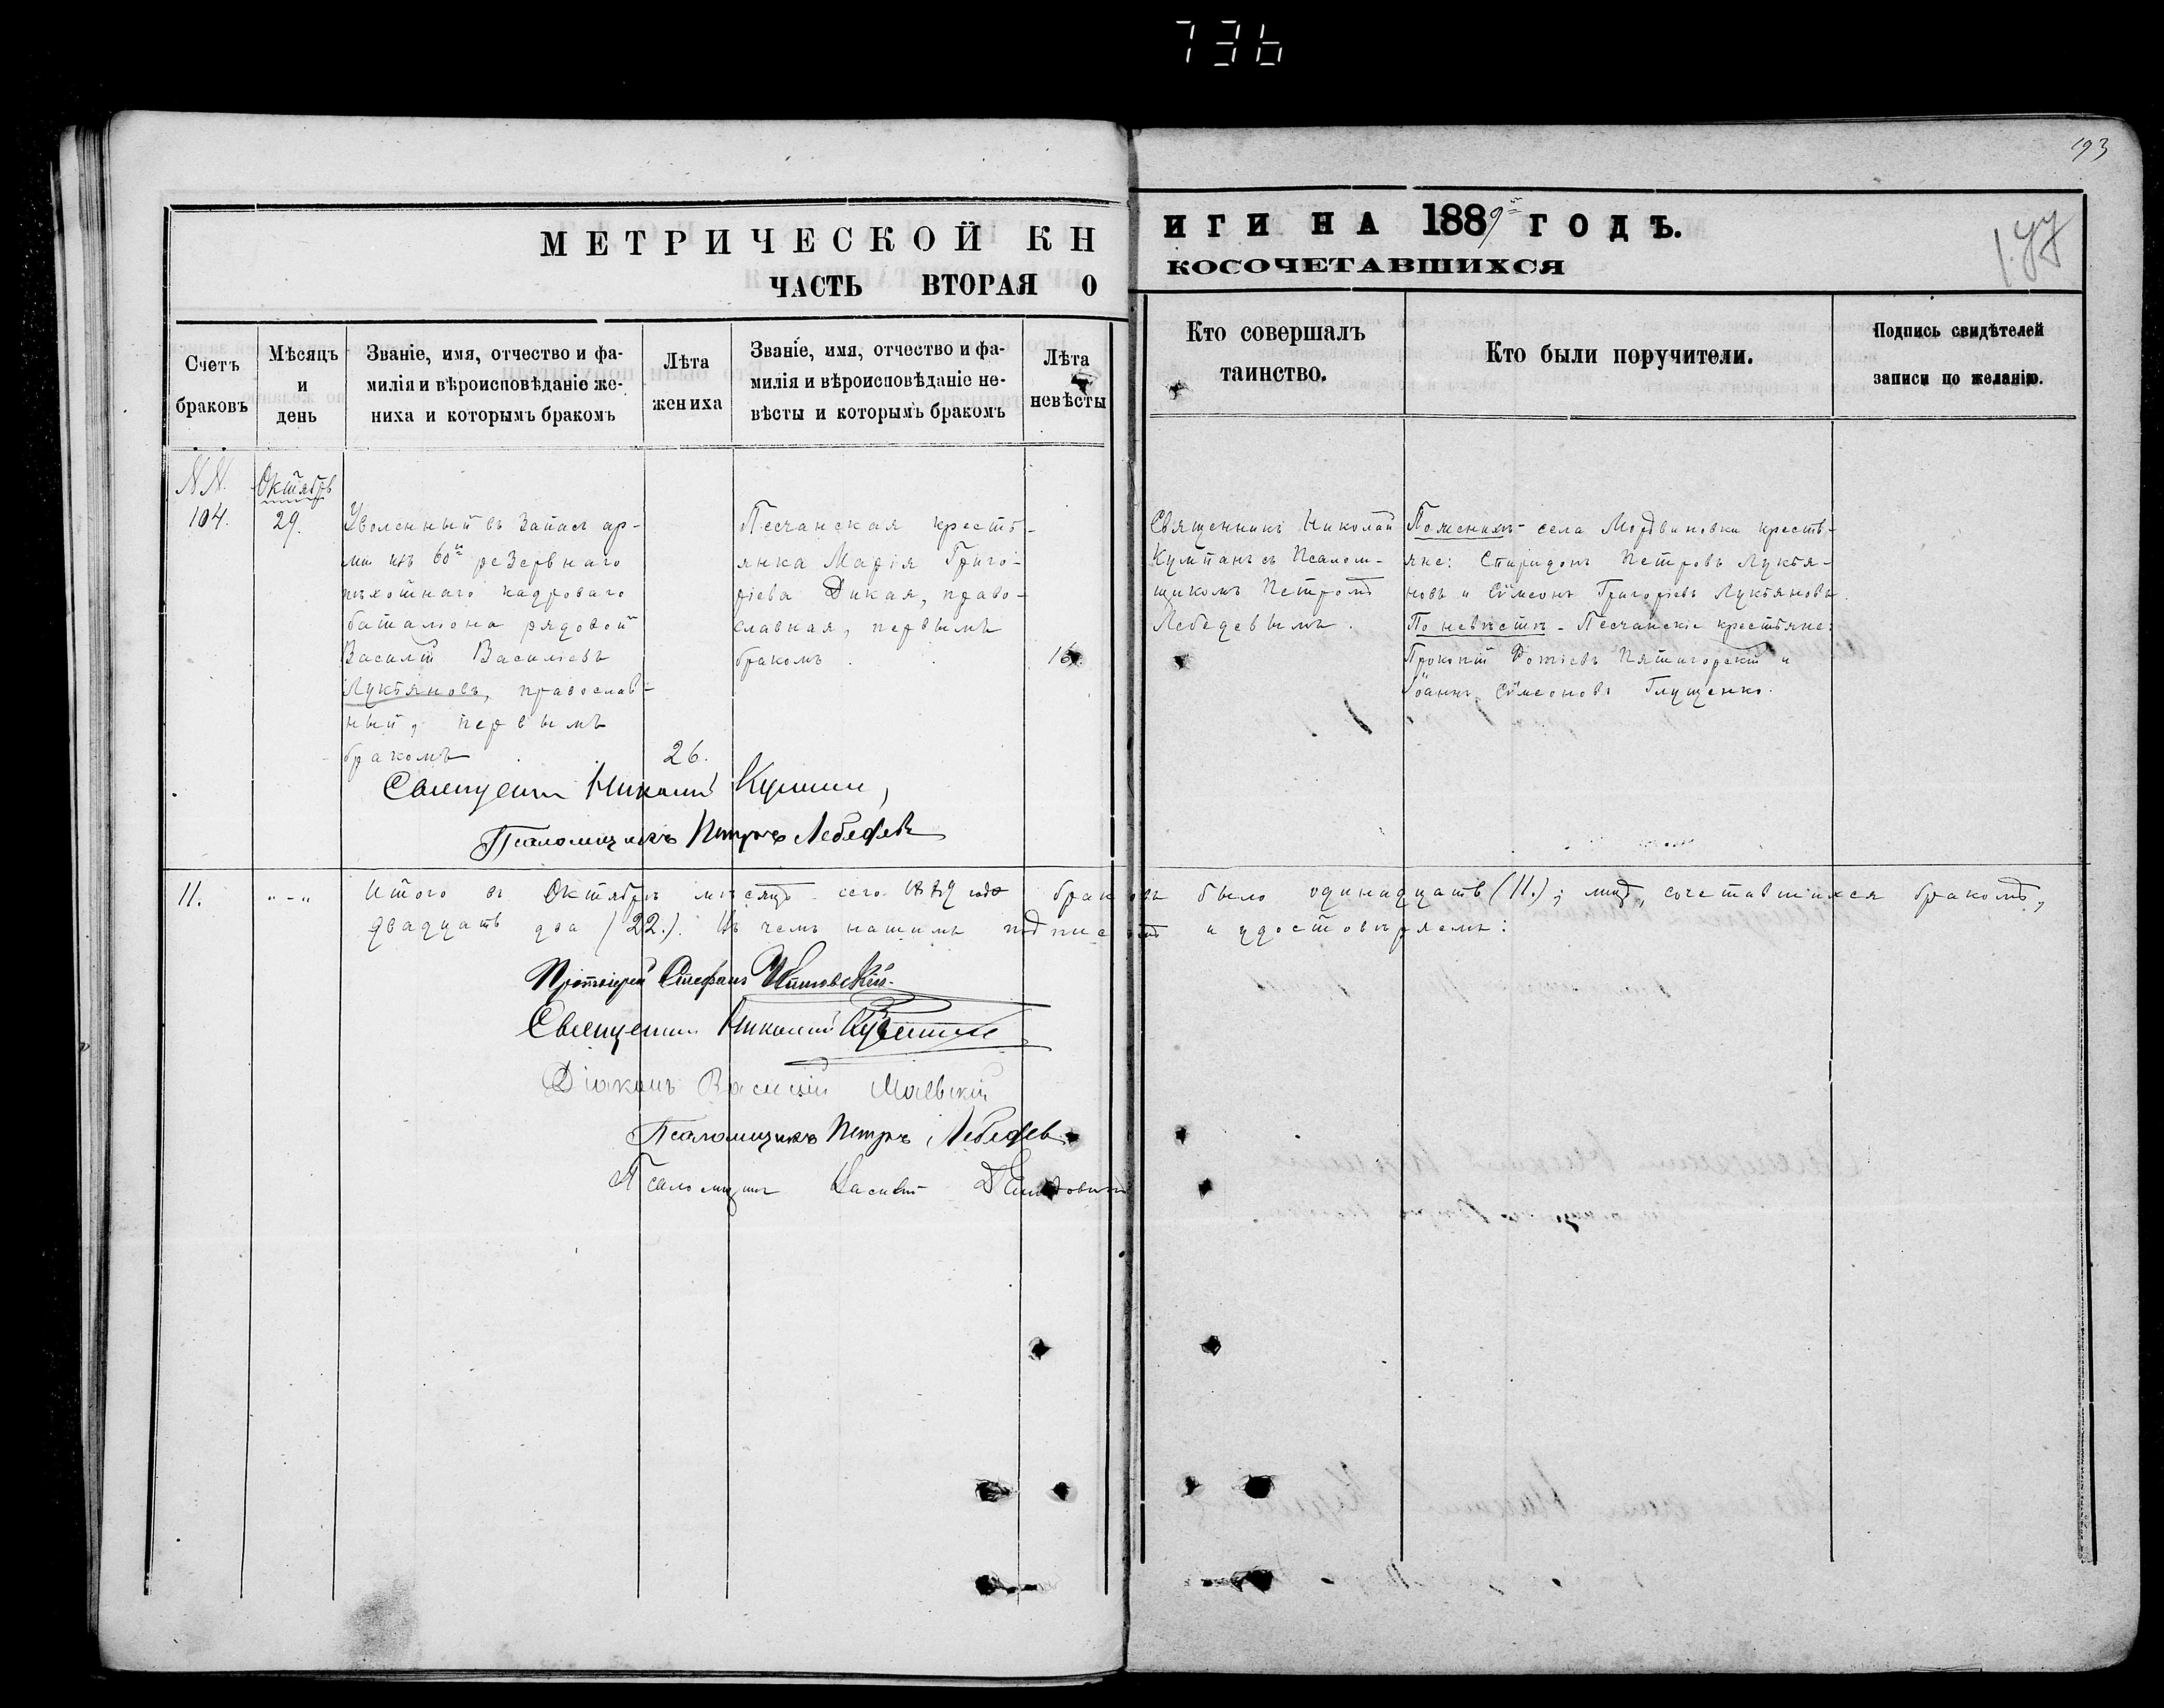 736
193
МЕТРИЧЕСКОЙ КН
ИГИ НА 1889й ГОДЪ.
ЧАСТЬ ВТОРАЯ О
КОСОЧЕТАВШИХСЯ
Счетъ браковъ
Мѣсяцъ и день
Званіе, имя, отчество и фа-
милія и вѣроисповѣданіе же-
ниха и которымъ бракомъ
Лѣта жениха
Званіе, имя, отчество и фа-
милія и вѣроисповѣданіе не-
вѣсты и которымъ бракомъ
Лѣта невѣсты
Кто совершалъ
таинство.
Кто были поручители.
Подпись свидѣтелей
записи по желанію.
NN.
104.
Октябрь
29.
Уволенный въ запасъ ар-
міи изъ 60го резервнаго
пѣхотнаго кадроваго
баталіона рядовой
Василій Василіевъ
Лукьяновъ, православ-
ный, первымъ
бракомъ
26.
Песчанская кресть-
янка Марія Григо-
ріева Дикая, право-
славная, первымъ
бракомъ.
16.
Священникъ Николай
съ Псалом-
щикомъ Петромъ
Лебедевымъ.
По женихѣ - села Мордвиновки кресть-
яне: Спиридонъ Петровъ Лукья-
новъ и Сѵмеонъ Григоріевъ Лукьяновъ.
По невѣстѣ - Песчанскіе крестьяне:
Прокопій Фотіевъ Пятигорскій и
Іоаннъ Сѵмеоновъ Глущенко.
Священникъ Николай
Псаломщикъ Петръ Лебедевъ
11. "-" Итого въ Октябрѣ мѣсяцѣ сего 1889 года браковъ было одинадцать (11.); лицъ, сочетавшихся бракомъ,
двадцать два (22.). Въ чемъ нашимъ подписомъ и удостовѣряемъ:
Протоіерей Стефанъ
Священникъ Николай
Діаконъ Василій Маевскій
Псаломщикъ Петръ Лебедевъ
Псаломщикъ Василій